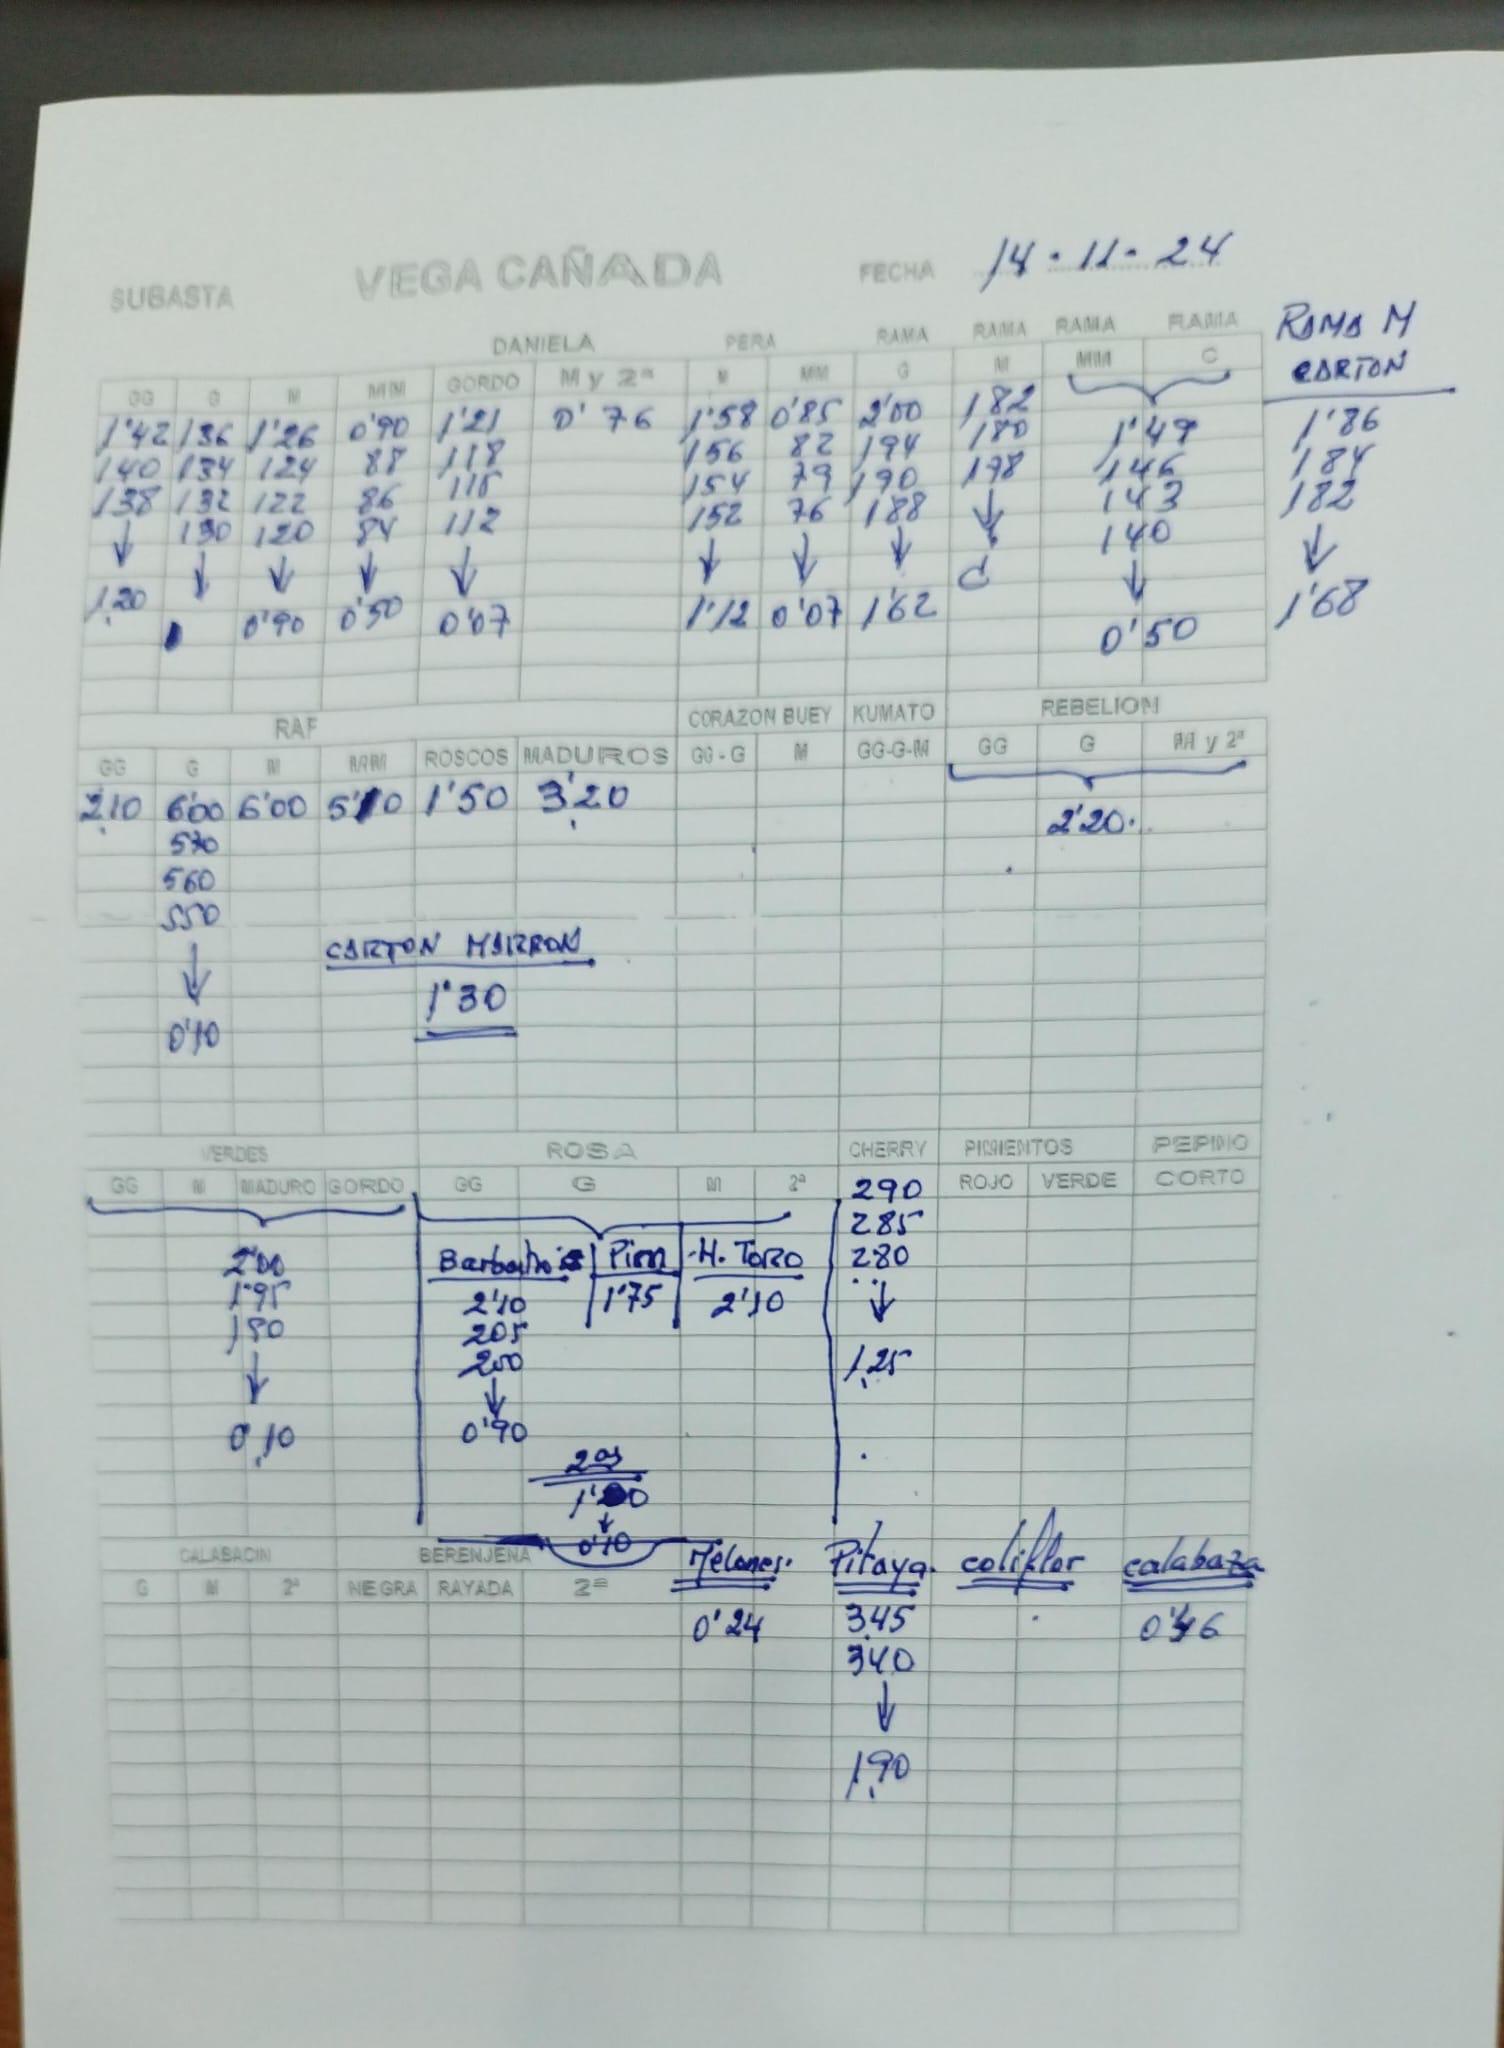 SUBASTA VEGA CAÑADA FECHA 14-11-24
DANIELA PERA RAMA RAMA RAMA RAMA RAMA M
GG G M MM GORDO M y 2ª M MM G M MM C CARTON
1'42 136 1'26 0'90 1'21 0'76 1'58 0'85 2'00 182 1'49 1'86
140 134 124 88 118 156 82 194 180 146 184
138 132 122 86 115 154 79 190 178 143 182
↓ 130 120 84 112 152 76 188 ↓ 140 ↓
↓ ↓ ↓ ↓ ↓ ↓ ↓ C ↓
1,20 0'90 0'50 0'07 1'12 0'07 1'62 0'50 1'68
RAF CORAZON BUEY KUMATO REBELION
GG G M MM ROSCOS MADUROS GG-G M GG-G-M GG G M y 2ª
2,10 6'00 6'00 5'10 1'50 3'20 2'20.
570
560
550
CARTON MARRON
↓ 1'30
0'10
VERDES ROSA CHERRY PIMIENTOS PEPINO
GG M MADURO GORDO GG G M 2ª 290 ROJO VERDE CORTO
285
2'00 Pim H. TORO 280
1'95 2'10 1'75 2'10 ↓
205
↓ 200 1,25
↓
0,10 0'90
2as
↓
0'10
CALABACIN BERENJENA Melones. Pitaya. coliflor calabaza
G M 2ª NEGRA RAYADA 2ª
0'24 3,45
340
↓
1,90